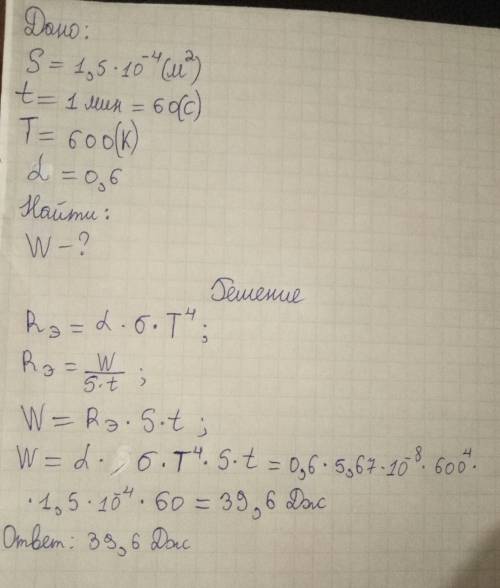 Дано:
S = 1,5 · 10⁻⁴ (м²)
t = 1 мин = 60(с)
T = 600(К)
α = 0,6
Найти:
W – ?
Решение
Rэ = α · σ · T⁴ ;
Rэ = W/S·t ;
W = Rэ · S · t ;
W = α · σ · T⁴ · S · t = 0,6 · 5,67 · 10⁻⁸ · 600⁴ ·
· 1,5 · 10⁻⁴ · 60 = 39,6 Дж
Ответ: 39,6 Дж